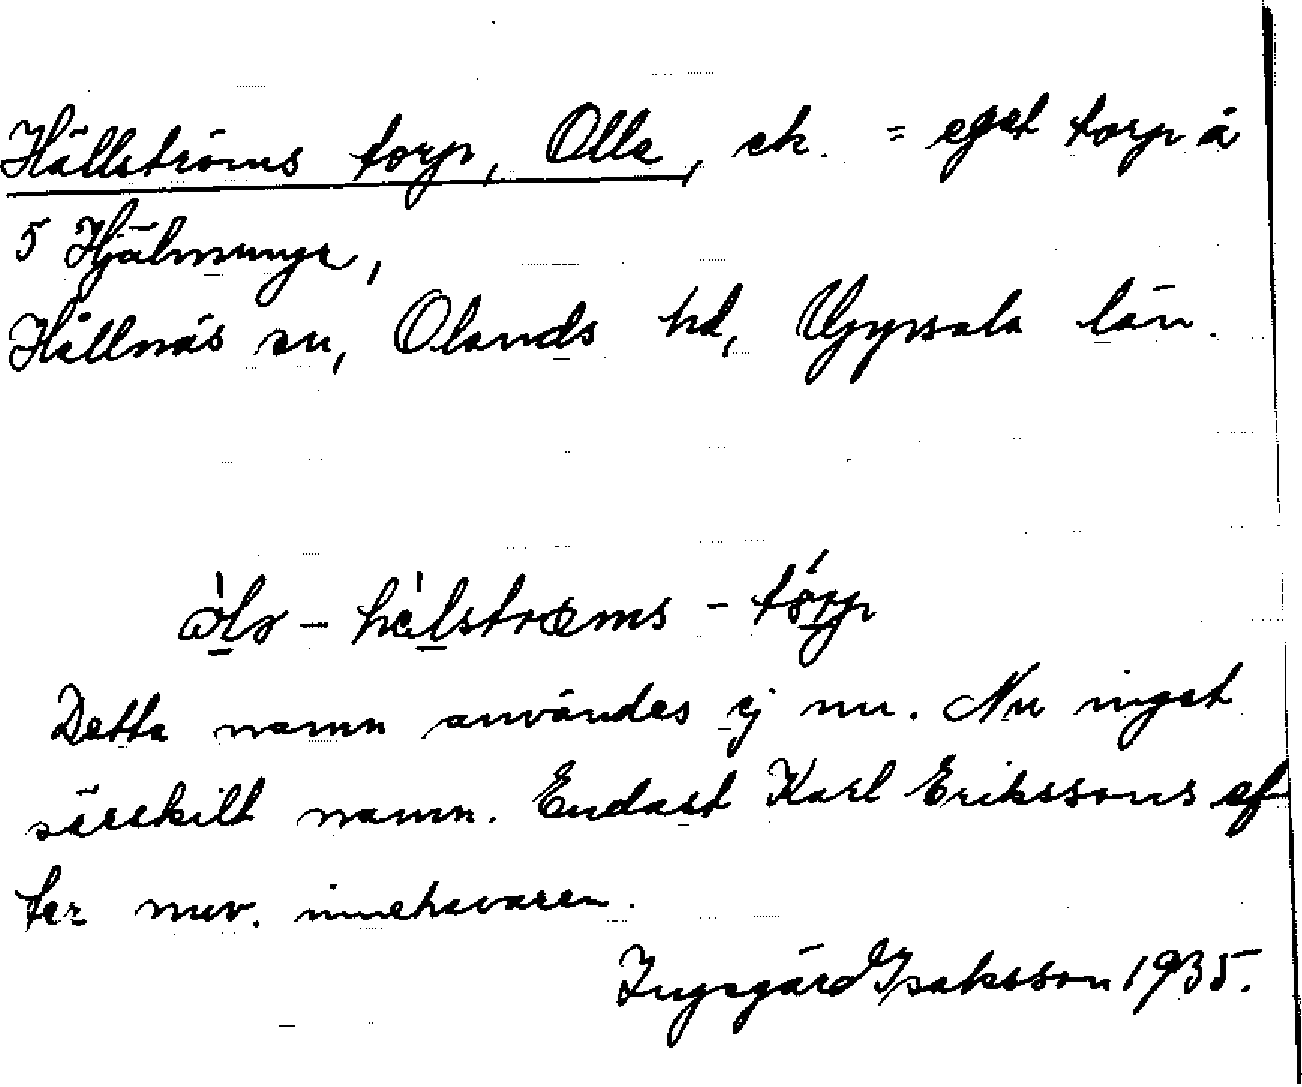 Hällströms torp, Olle, ek. = eget torp å
5 Hjälmunge,
Hållnäs sn, Olands hd, Uppsala län.
òlɘ – hèlstrœms – tórp
Detta namn användes ej nu. Nu inget
särskilt namn. Endast Karl Erikssons ef
ter nuv. innehavaren.
Ingegärd Isaksson 1935.